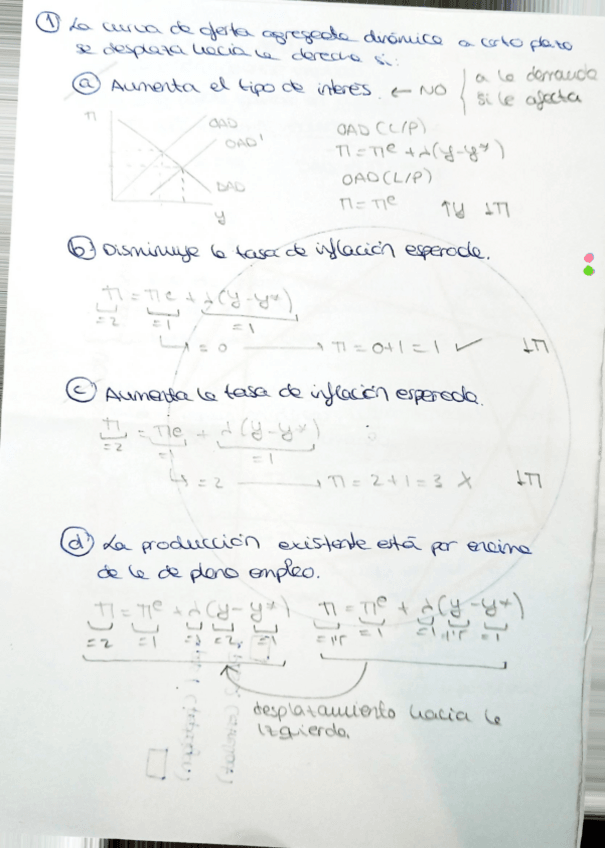 ① La curva de oferta agregada dinámica a corto plazo
se desplaza hacia la derecha si:
ⓐ Aumenta el tipo de interés. ← NO { a la demanda
si le afecta
π
OAD
OAD'
DAD
y
OAD (C/P)
π = πᵉ + λ(y-y*)
OAD (L/P)
π = πᵉ ↑y ↓π
ⓑ Disminuye la tasa de inflación esperada.
π = πᵉ + λ(y-y*)
=2 =1 =1
↳ = 0 → π = 0+1 = 1 ✓ ↓π
ⓒ Aumenta la tasa de inflación esperada.
π = πe + λ(y-y*)
=2 =1 =1
↳ = 2 → π = 2+1 = 3 X ↓π
ⓓ La producción existente está por encima
de la de pleno empleo.
π = πᵉ + λ(y-y*) π = πᵉ + λ(y-y*)
=2 =1 =1 =2 =1 =1'5 =1 =1 1'5 =1
desplazamiento hacia la
izquierda.